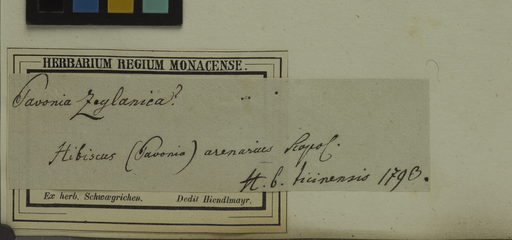 HERBARIUM REGIUM MONACENSE.
Pavonia Zeylanica?
Hibiscus (Pavonia) arenarius Scopol.
H. b. ticinensis 1793.
Ex herb. Schwægrichen. Dedit Hiendlmayr.